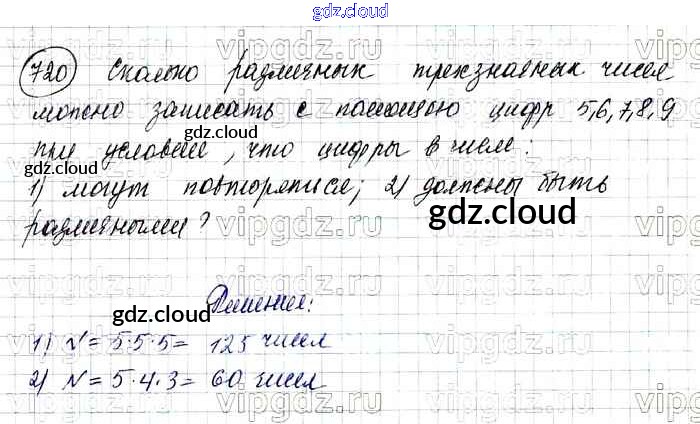 gdz.cloud
720 Сколько различных трехзначных чисел
можно записать с помощью цифр 5,6,7,8,9
gdz.cloud
при условии, что цифры в числе:
gdz.cloud
1) могут повторяться; 2) должны быть
gdz.cloud
различными?
Решение:
gdz.cloud
1) N = 5·5·5 = 125 чисел
2) N = 5·4·3 = 60 чисел
gdz.cloud